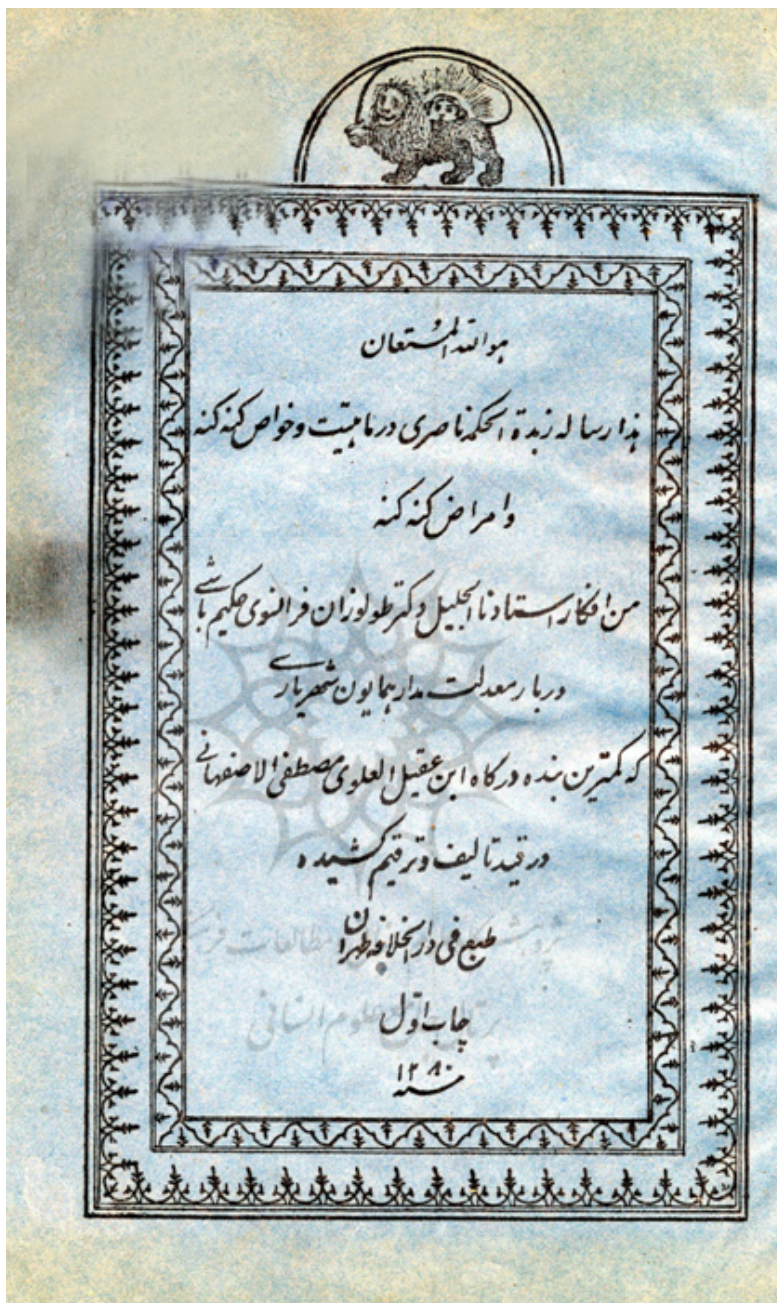 هوالله المستعان
هذا رساله زبدة الحکمه ناصری در ماهیّت و خواص کنه کنه
و امراض کنه کنه
من افکار استادنا الجلیل دکتر طولوزان فرانسوی حکیم باشی
دربار معدلت مدار همایون شهریاری
که کمترین بنده درگاه ابن عقیل العلوی مصطفی الاصفهانی
در قید تالیف و ترقیم کشیده
طبع فی دارالخلافه طهران
چاپ اوّل
سنه ۱۲۸۰
پژوهشگاه علوم انسانی و مطالعات فرهنگی
پرتال جامع علوم انسانی